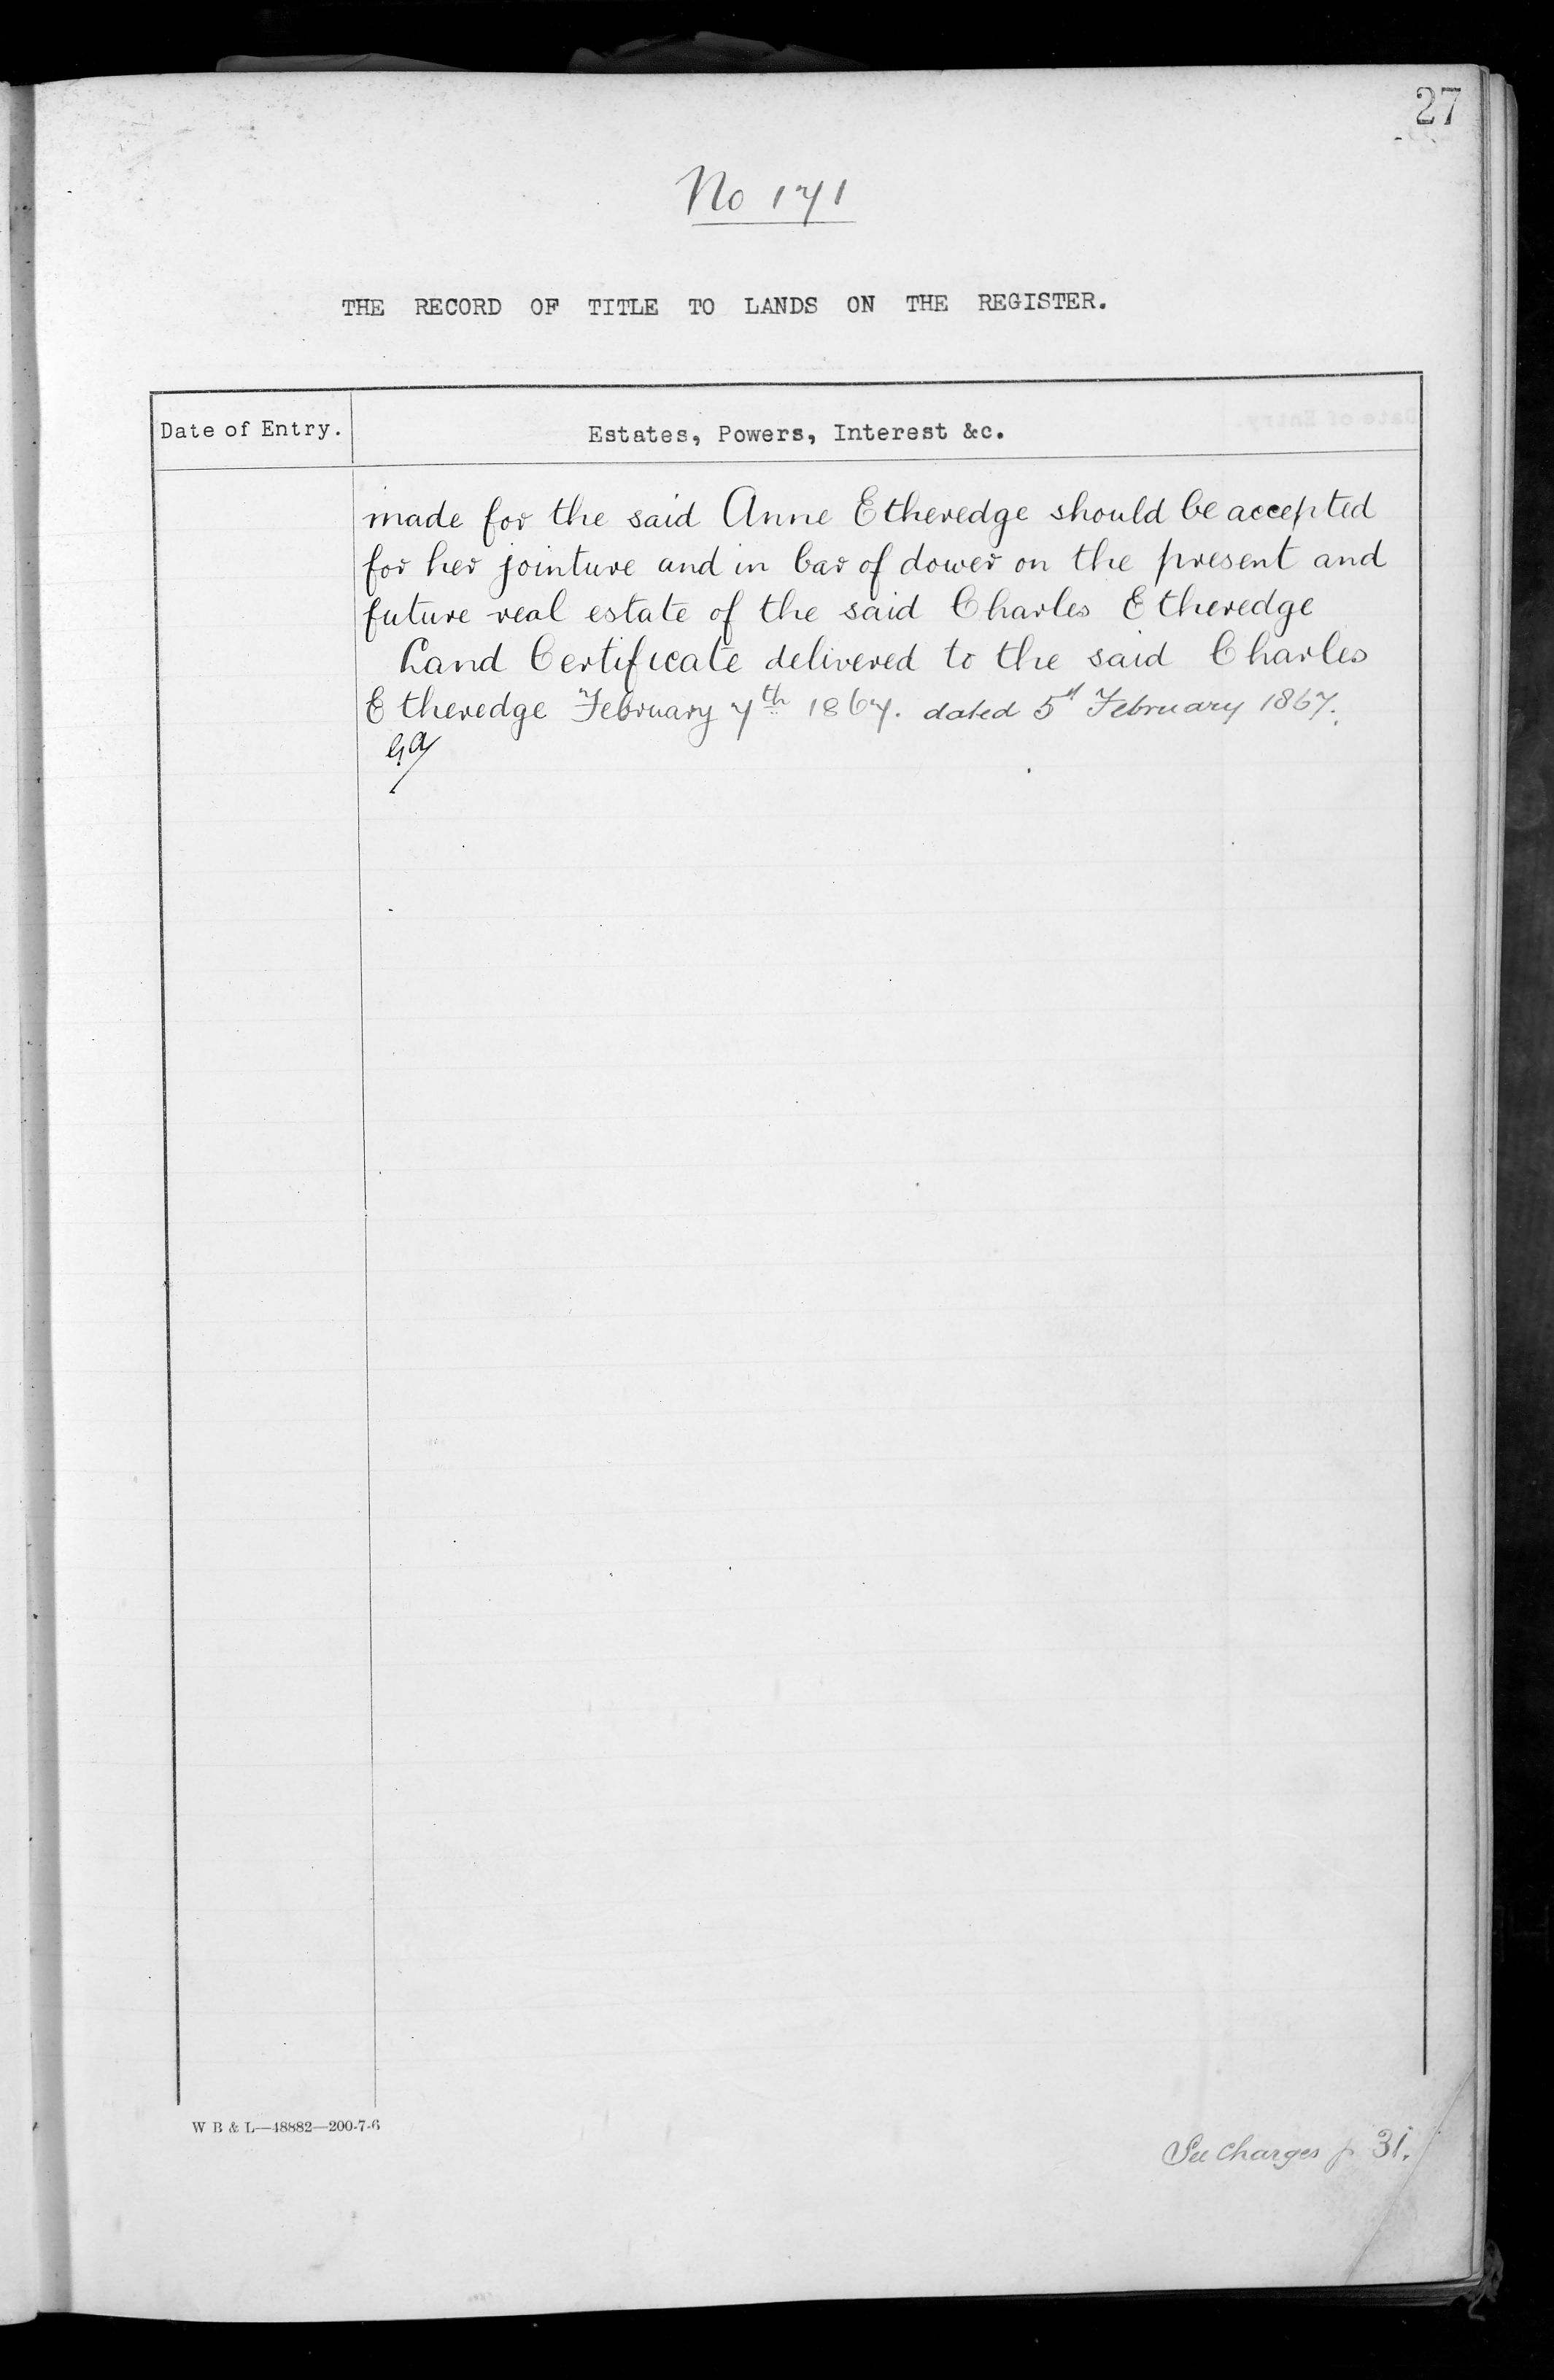 27
No 171
THE RECORD OF TITLE TO LANDS ON THE REGISTER.
Date of Entry.
Estates, Powers, Interest &c.
made for the said Anne Etheredge should be accepted
for her jointure and in bar of dower on the present and
future real estate of the said Charles Etheredge
Land Certificate delivered to the said Charles
Etheredge February 7th 1867. dated 5th February 1867.
W B & L—48882—200-7-6
See Charges p 31.